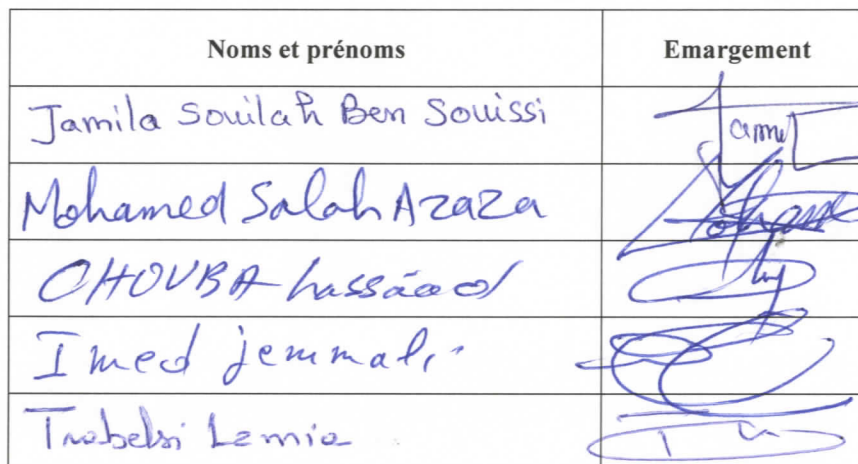 Noms et prénoms Emargement
Jamila Souilah Ben Souissi
Mohamed Salah Azaza
CHOUBA Lassâad
Imed jemmali
Trabelsi Lamia